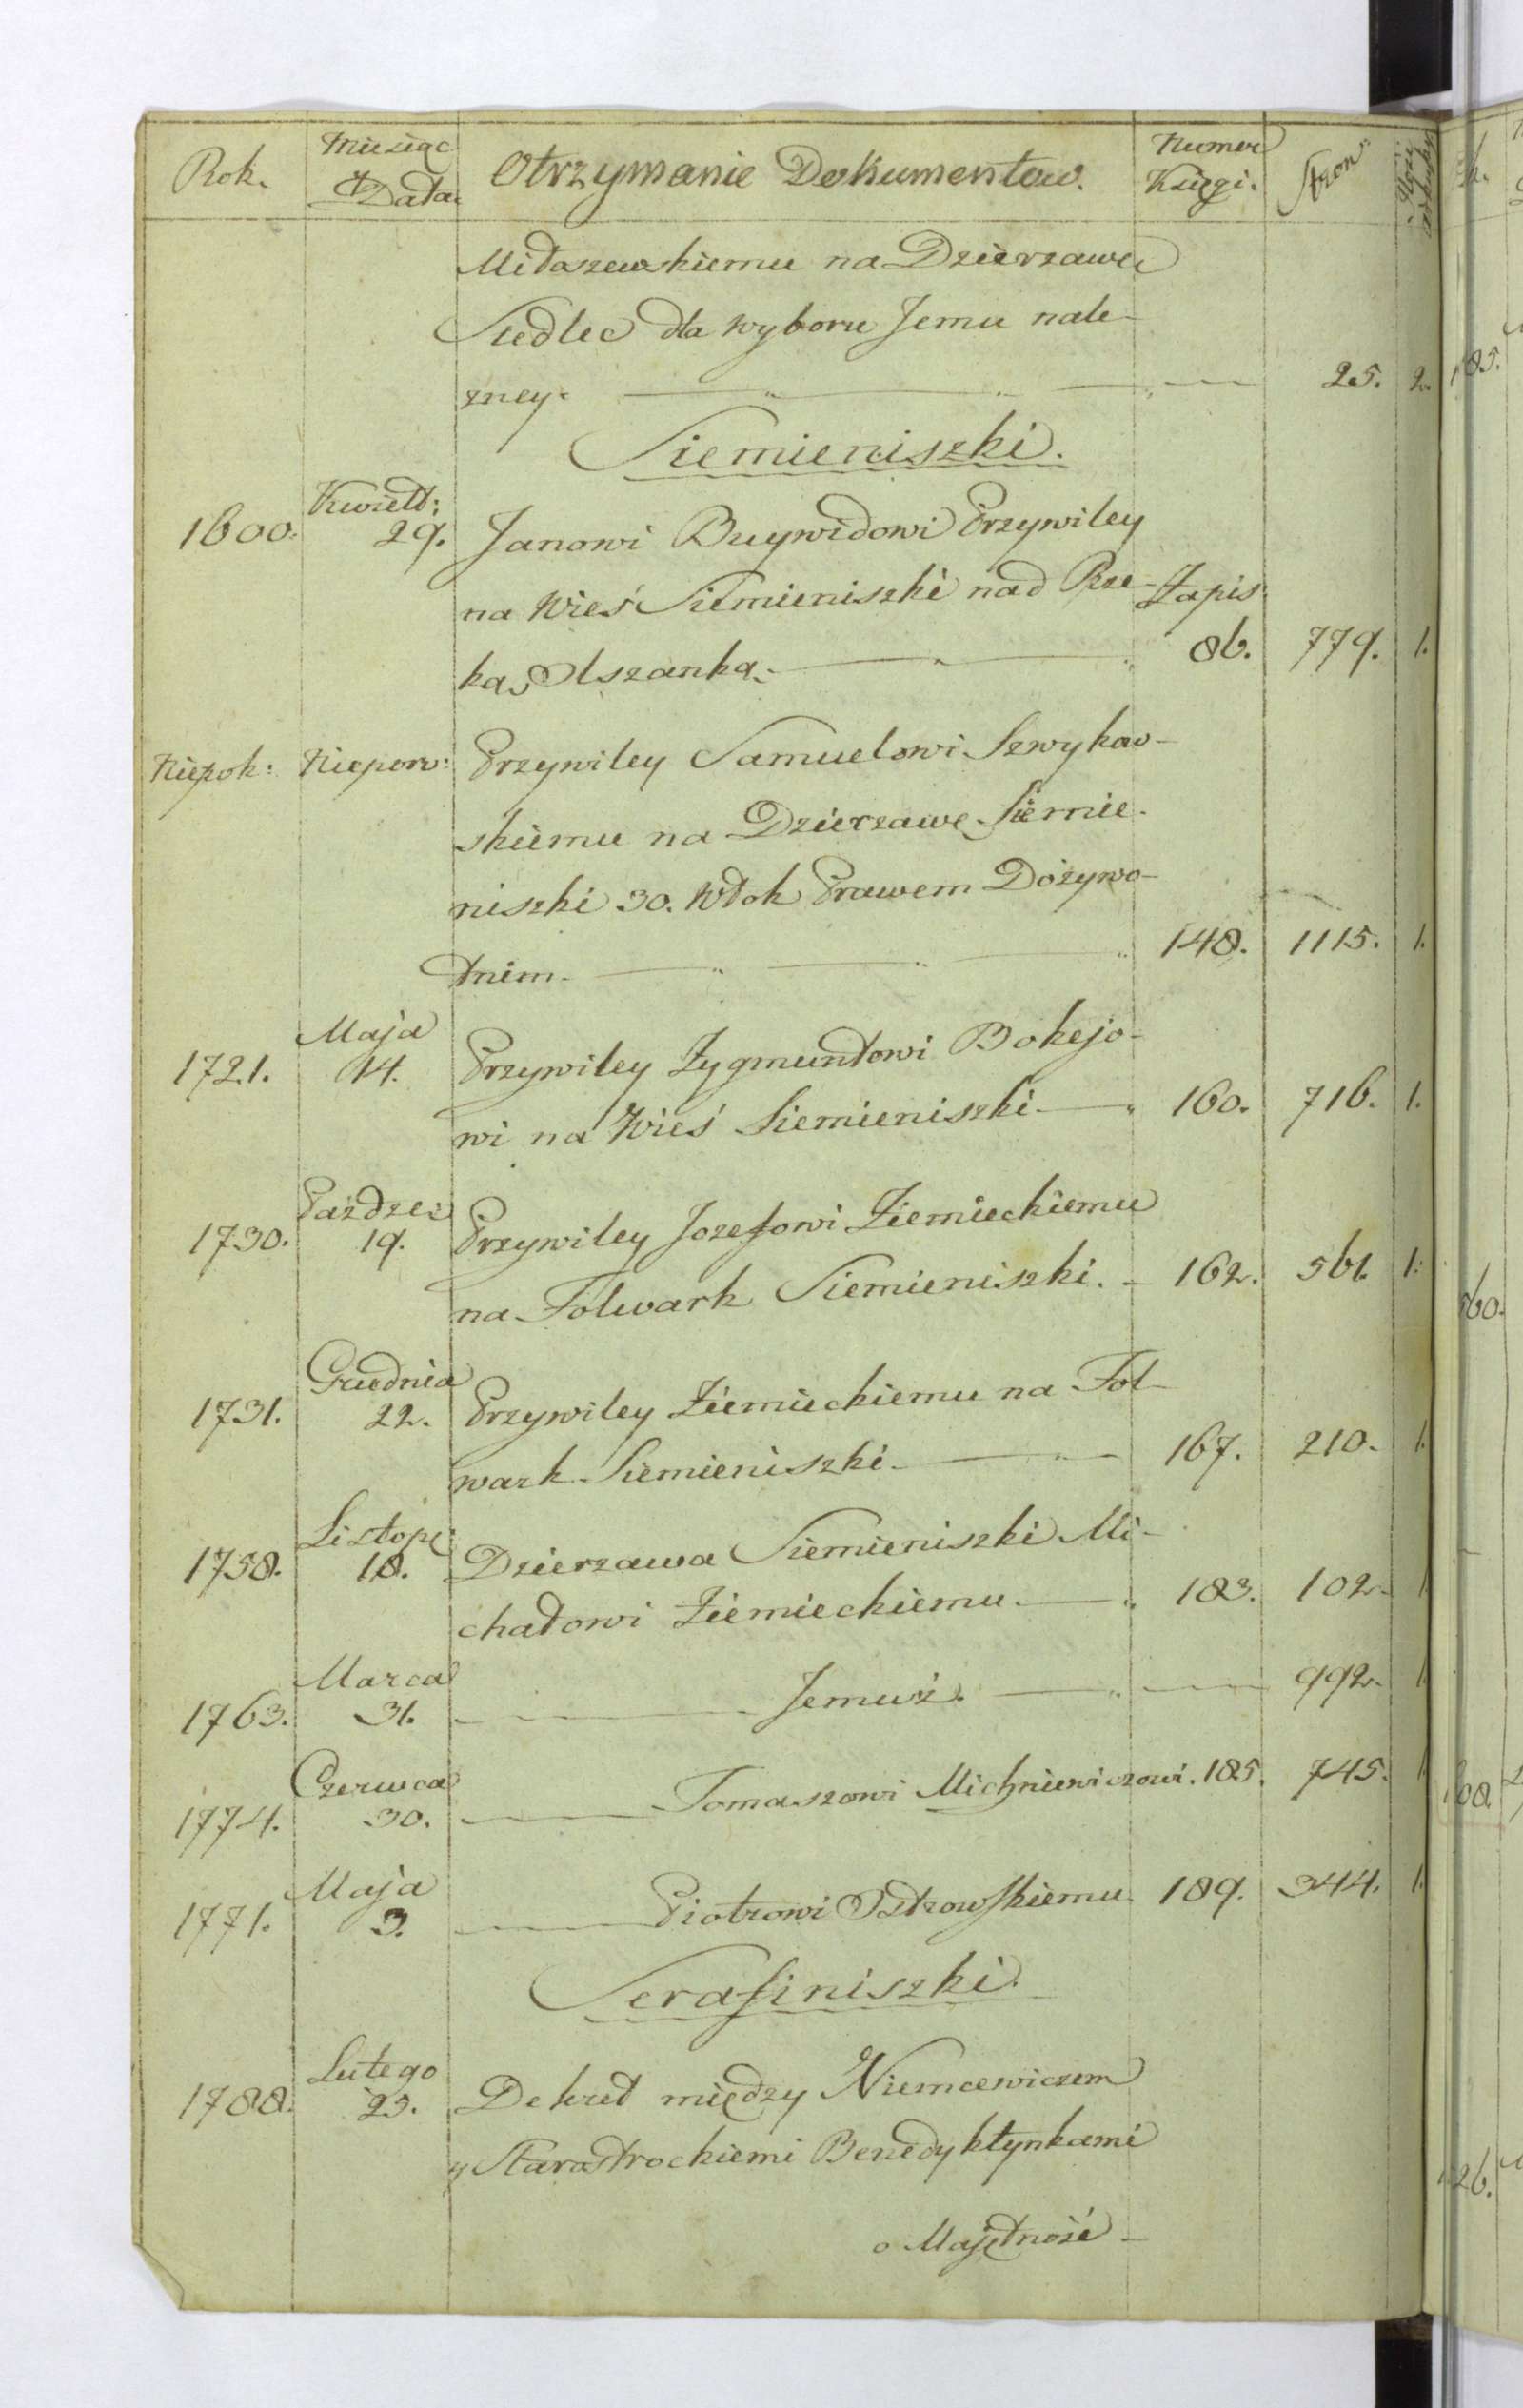 Rok. Miesiąc Data. Otrzymanie Dokumentow. Numer Księgi. Stron:
Miłaszewskiemu na Dzierzawę
Siedlec dla wyboru Jemu nale-
zney. 25. 2.
Siemieniszki.
1600. Kwiett: 29. Janowi Buywidowi Przywiley
na Wieś Siemieniszki nad Rze- Zapis:
ką Olszanką. 86. 779. 1.
Niepok: Niepow: Przywiley Samuelowi Szwykow-
skiemu na Dzierzawę Siemie-
niszki 30. Włok Prawem Dożywo-
tnim. 148. 1115. 1.
1721. Maja 14. Przywiley Zygmuntowi Bokejo-
wi na Wieś Siemieniszki 160. 716. 1.
1730. Paździe: 19. Przywiley Jozefowi Ziemieckiemu
na Folwark Siemieniszki. 162. 561. 1.
1731. Grudnia 22. Przywiley Ziemieckiemu na Fol-
wark Siemieniszki. 167. 210. 1.
1758. Listop: 18. Dzierzawa Siemieniszki Mi-
chałowi Ziemieckiemu. 183. 102. 1
1763. Marca 31. Jemuż. 992. 1
1774. Czerwca 30. Tomaszowi Michniewiczowi. 185. 745. 1
1771. Maja 3. Piotrowi Ostrowskiemu 189. 344. 1.
Serafiniszki.
1788. Lutego 23. Dekret między Niemcewiczem
y Starostrockiemi Benedyktynkami
o Majętność